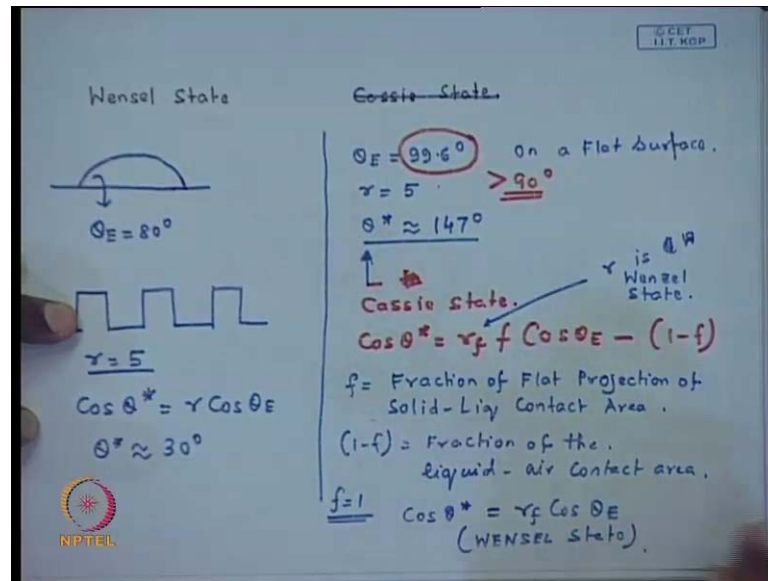 © CET
I.I.T. KGP
Wensel State
Cossie State.
θE = 80°
r = 5
Cos θ* = r Cos θE
θ* ≈ 30°
θE = 99.6° on a Flat Surface.
> 90°
r = 5
θ* ≈ 147°
Cassie State.
r is
Wenzel
State.
Cos θ* = rf f Cos θE - (1-f)
f = Fraction of Flat Projection of
Solid-Liq Contact Area.
(1-f) = Fraction of the
liquid - air Contact area.
f=1 Cos θ* = rf Cos θE
(WENSEL State).
NPTEL